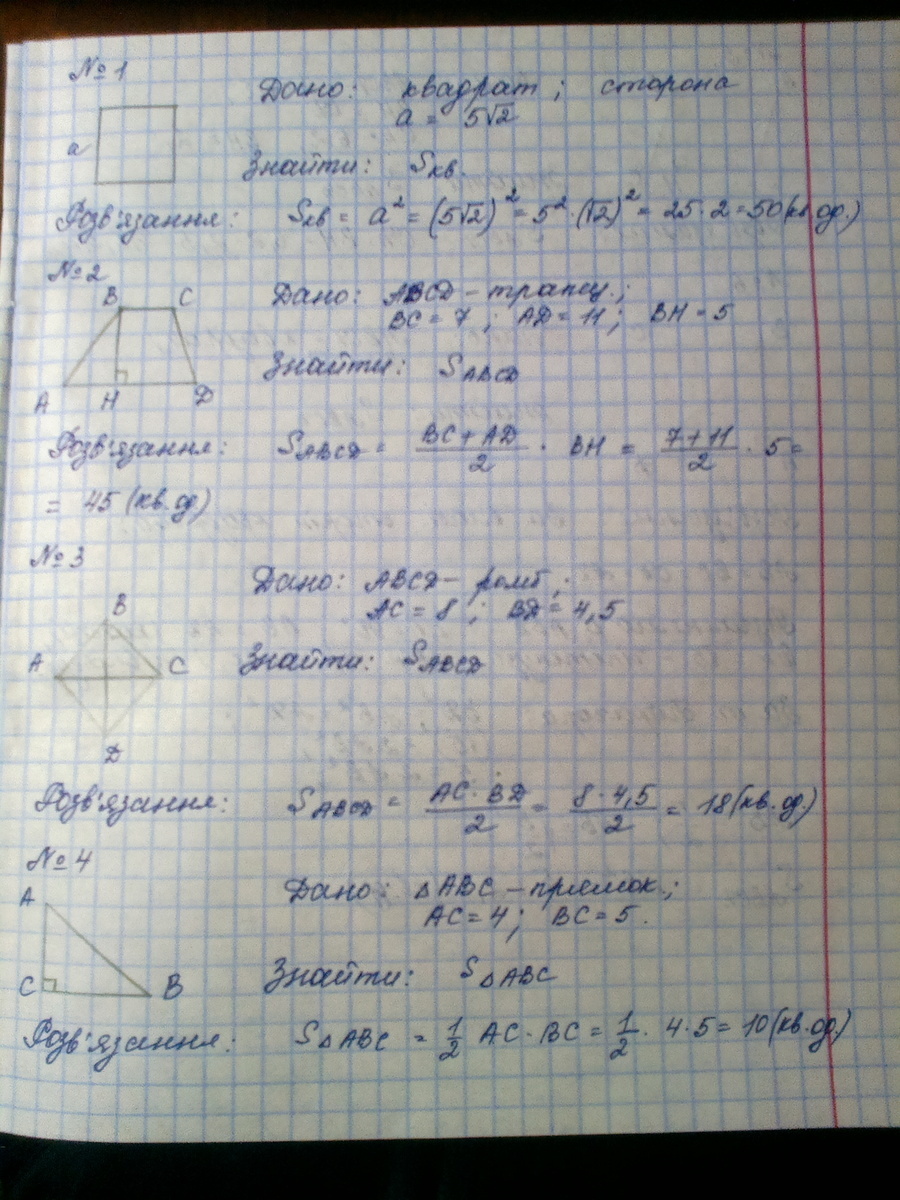 № 1
a
Дано: квадрат; сторона
a = 5√2
Знайти: Sкв.
Розв'язання: Sкв = a² = (5√2)² = 5² · (√2)² = 25 · 2 = 50 (кв.од.)
№ 2
B C
A H D
Дано: ABCD – трапец.;
BC = 7; AD = 11; BH = 5
Знайти: SABCD
Розв'язання: SABCD = (BC + AD)/2 · BH = (7 + 11)/2 · 5 =
= 45 (кв.од)
№ 3
B
A C
D
Дано: ABCD – ромб;
AC = 8; BD = 4,5
Знайти: SABCD
Розв'язання: SABCD = (AC · BD)/2 = (8 · 4,5)/2 = 18 (кв.од.)
№ 4
A
C B
Дано: △ABC – прямок.;
AC = 4; BC = 5.
Знайти: S△ABC
Розв'язання: S△ABC = 1/2 AC · BC = 1/2 · 4 · 5 = 10 (кв.од.)